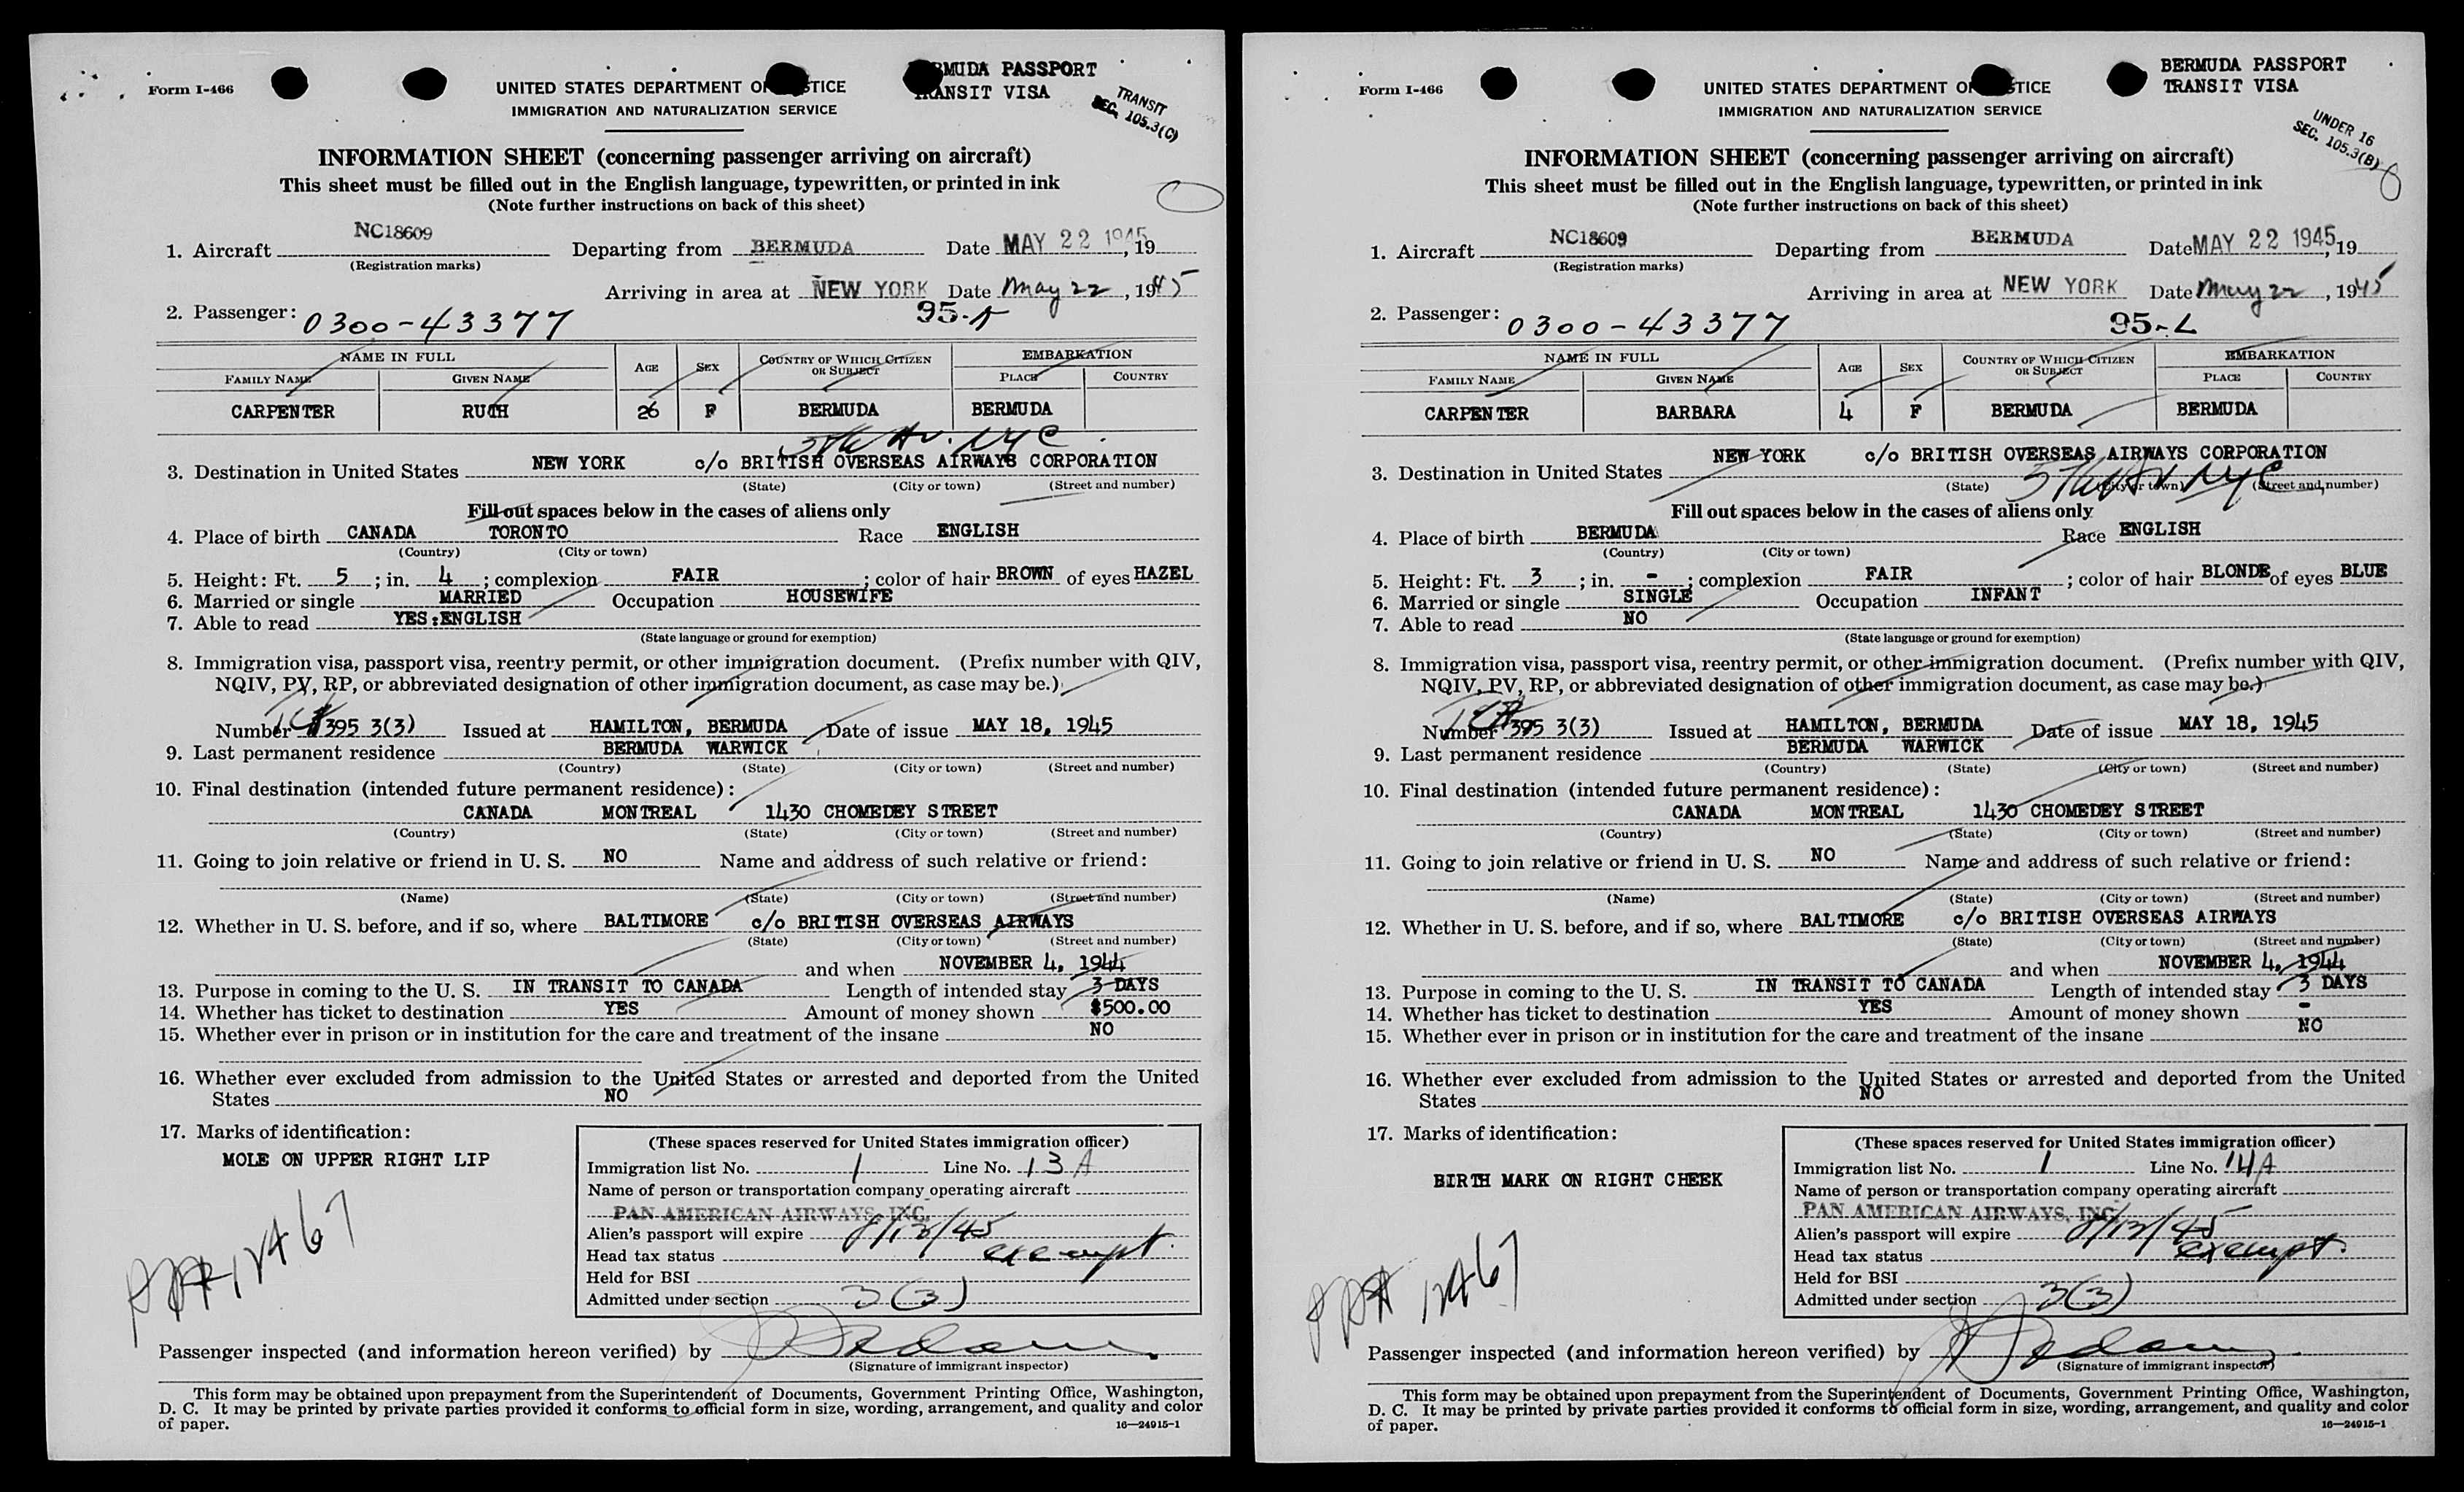 BERMUDA PASSPORT
TRANSIT VISA
TRANSIT
SEC. 105.3(C)
Form I-466
UNITED STATES DEPARTMENT OF JUSTICE
IMMIGRATION AND NATURALIZATION SERVICE
INFORMATION SHEET (concerning passenger arriving on aircraft)
This sheet must be filled out in the English language, typewritten, or printed in ink
(Note further instructions on back of this sheet)
1. Aircraft NC18609 Departing from BERMUDA Date MAY 22 1945, 19
(Registration marks)
Arriving in area at NEW YORK Date May 22, 1945
2. Passenger: 0300-43377 95-
NAME IN FULL AGE SEX COUNTRY OF WHICH CITIZEN OR SUBJECT EMBARKATION
FAMILY NAME GIVEN NAME PLACE COUNTRY
CARPENTER RUTH 26 F BERMUDA BERMUDA
5th Av. NYC
3. Destination in United States NEW YORK c/o BRITISH OVERSEAS AIRWAYS CORPORATION
(State) (City or town) (Street and number)
Fill out spaces below in the cases of aliens only
4. Place of birth CANADA TORONTO Race ENGLISH
(Country) (City or town)
5. Height: Ft. 5; in. 4; complexion FAIR; color of hair BROWN of eyes HAZEL
6. Married or single MARRIED Occupation HOUSEWIFE
7. Able to read YES:ENGLISH
(State language or ground for exemption)
8. Immigration visa, passport visa, reentry permit, or other immigration document. (Prefix number with QIV,
NQIV, PV, RP, or abbreviated designation of other immigration document, as case may be.)
Number 395 3(3) Issued at HAMILTON, BERMUDA Date of issue MAY 18, 1945
9. Last permanent residence BERMUDA WARWICK
(Country) (State) (City or town) (Street and number)
10. Final destination (intended future permanent residence):
CANADA MONTREAL 1430 CHOMEDEY STREET
(Country) (State) (City or town) (Street and number)
11. Going to join relative or friend in U. S. NO Name and address of such relative or friend:
(Name) (State) (City or town) (Street and number)
12. Whether in U. S. before, and if so, where BALTIMORE c/o BRITISH OVERSEAS AIRWAYS
(State) (City or town) (Street and number)
and when NOVEMBER 4, 1944
13. Purpose in coming to the U. S. IN TRANSIT TO CANADA Length of intended stay 3 DAYS
14. Whether has ticket to destination YES Amount of money shown $500.00
15. Whether ever in prison or in institution for the care and treatment of the insane NO
16. Whether ever excluded from admission to the United States or arrested and deported from the United
States NO
17. Marks of identification:
MOLE ON UPPER RIGHT LIP
(These spaces reserved for United States immigration officer)
Immigration list No. 1 Line No. 13A
Name of person or transportation company operating aircraft
PAN AMERICAN AIRWAYS, INC.
Alien's passport will expire 8/13/45
Head tax status exempt.
Held for BSI
Admitted under section 3(3)
Passenger inspected (and information hereon verified) by
(Signature of immigrant inspector)
This form may be obtained upon prepayment from the Superintendent of Documents, Government Printing Office, Washington,
D. C. It may be printed by private parties provided it conforms to official form in size, wording, arrangement, and quality and color
of paper. 16—24915-1
BERMUDA PASSPORT
TRANSIT VISA
UNDER 16
SEC. 105.3(B)
Form I-466
UNITED STATES DEPARTMENT OF JUSTICE
IMMIGRATION AND NATURALIZATION SERVICE
INFORMATION SHEET (concerning passenger arriving on aircraft)
This sheet must be filled out in the English language, typewritten, or printed in ink
(Note further instructions on back of this sheet)
1. Aircraft NC18609 Departing from BERMUDA Date MAY 22 1945, 19
(Registration marks)
Arriving in area at NEW YORK Date May 22, 1945
2. Passenger: 0300-43377 95-L
NAME IN FULL AGE SEX COUNTRY OF WHICH CITIZEN OR SUBJECT EMBARKATION
FAMILY NAME GIVEN NAME PLACE COUNTRY
CARPENTER BARBARA 4 F BERMUDA BERMUDA
3. Destination in United States NEW YORK c/o BRITISH OVERSEAS AIRWAYS CORPORATION
5th Av NYC
(State) (City or town) (Street and number)
Fill out spaces below in the cases of aliens only
4. Place of birth BERMUDA Race ENGLISH
(Country) (City or town)
5. Height: Ft. 3; in. -; complexion FAIR; color of hair BLONDE of eyes BLUE
6. Married or single SINGLE Occupation INFANT
7. Able to read NO
(State language or ground for exemption)
8. Immigration visa, passport visa, reentry permit, or other immigration document. (Prefix number with QIV,
NQIV, PV, RP, or abbreviated designation of other immigration document, as case may be.)
Number 395 3(3) Issued at HAMILTON, BERMUDA Date of issue MAY 18, 1945
9. Last permanent residence BERMUDA WARWICK
(Country) (State) (City or town) (Street and number)
10. Final destination (intended future permanent residence):
CANADA MONTREAL 1430 CHOMEDEY STREET
(Country) (State) (City or town) (Street and number)
11. Going to join relative or friend in U. S. NO Name and address of such relative or friend:
(Name) (State) (City or town) (Street and number)
12. Whether in U. S. before, and if so, where BALTIMORE c/o BRITISH OVERSEAS AIRWAYS
(State) (City or town) (Street and number)
and when NOVEMBER 4, 1944
13. Purpose in coming to the U. S. IN TRANSIT TO CANADA Length of intended stay 3 DAYS
14. Whether has ticket to destination YES Amount of money shown -
15. Whether ever in prison or in institution for the care and treatment of the insane NO
16. Whether ever excluded from admission to the United States or arrested and deported from the United
States NO
17. Marks of identification:
BIRTH MARK ON RIGHT CHEEK
(These spaces reserved for United States immigration officer)
Immigration list No. 1 Line No. 14A
Name of person or transportation company operating aircraft
PAN AMERICAN AIRWAYS, INC.
Alien's passport will expire 8/13/45
Head tax status exempt.
Held for BSI
Admitted under section 3(3)
Passenger inspected (and information hereon verified) by
(Signature of immigrant inspector)
This form may be obtained upon prepayment from the Superintendent of Documents, Government Printing Office, Washington,
D. C. It may be printed by private parties provided it conforms to official form in size, wording, arrangement, and quality and color
of paper. 16—24915-1